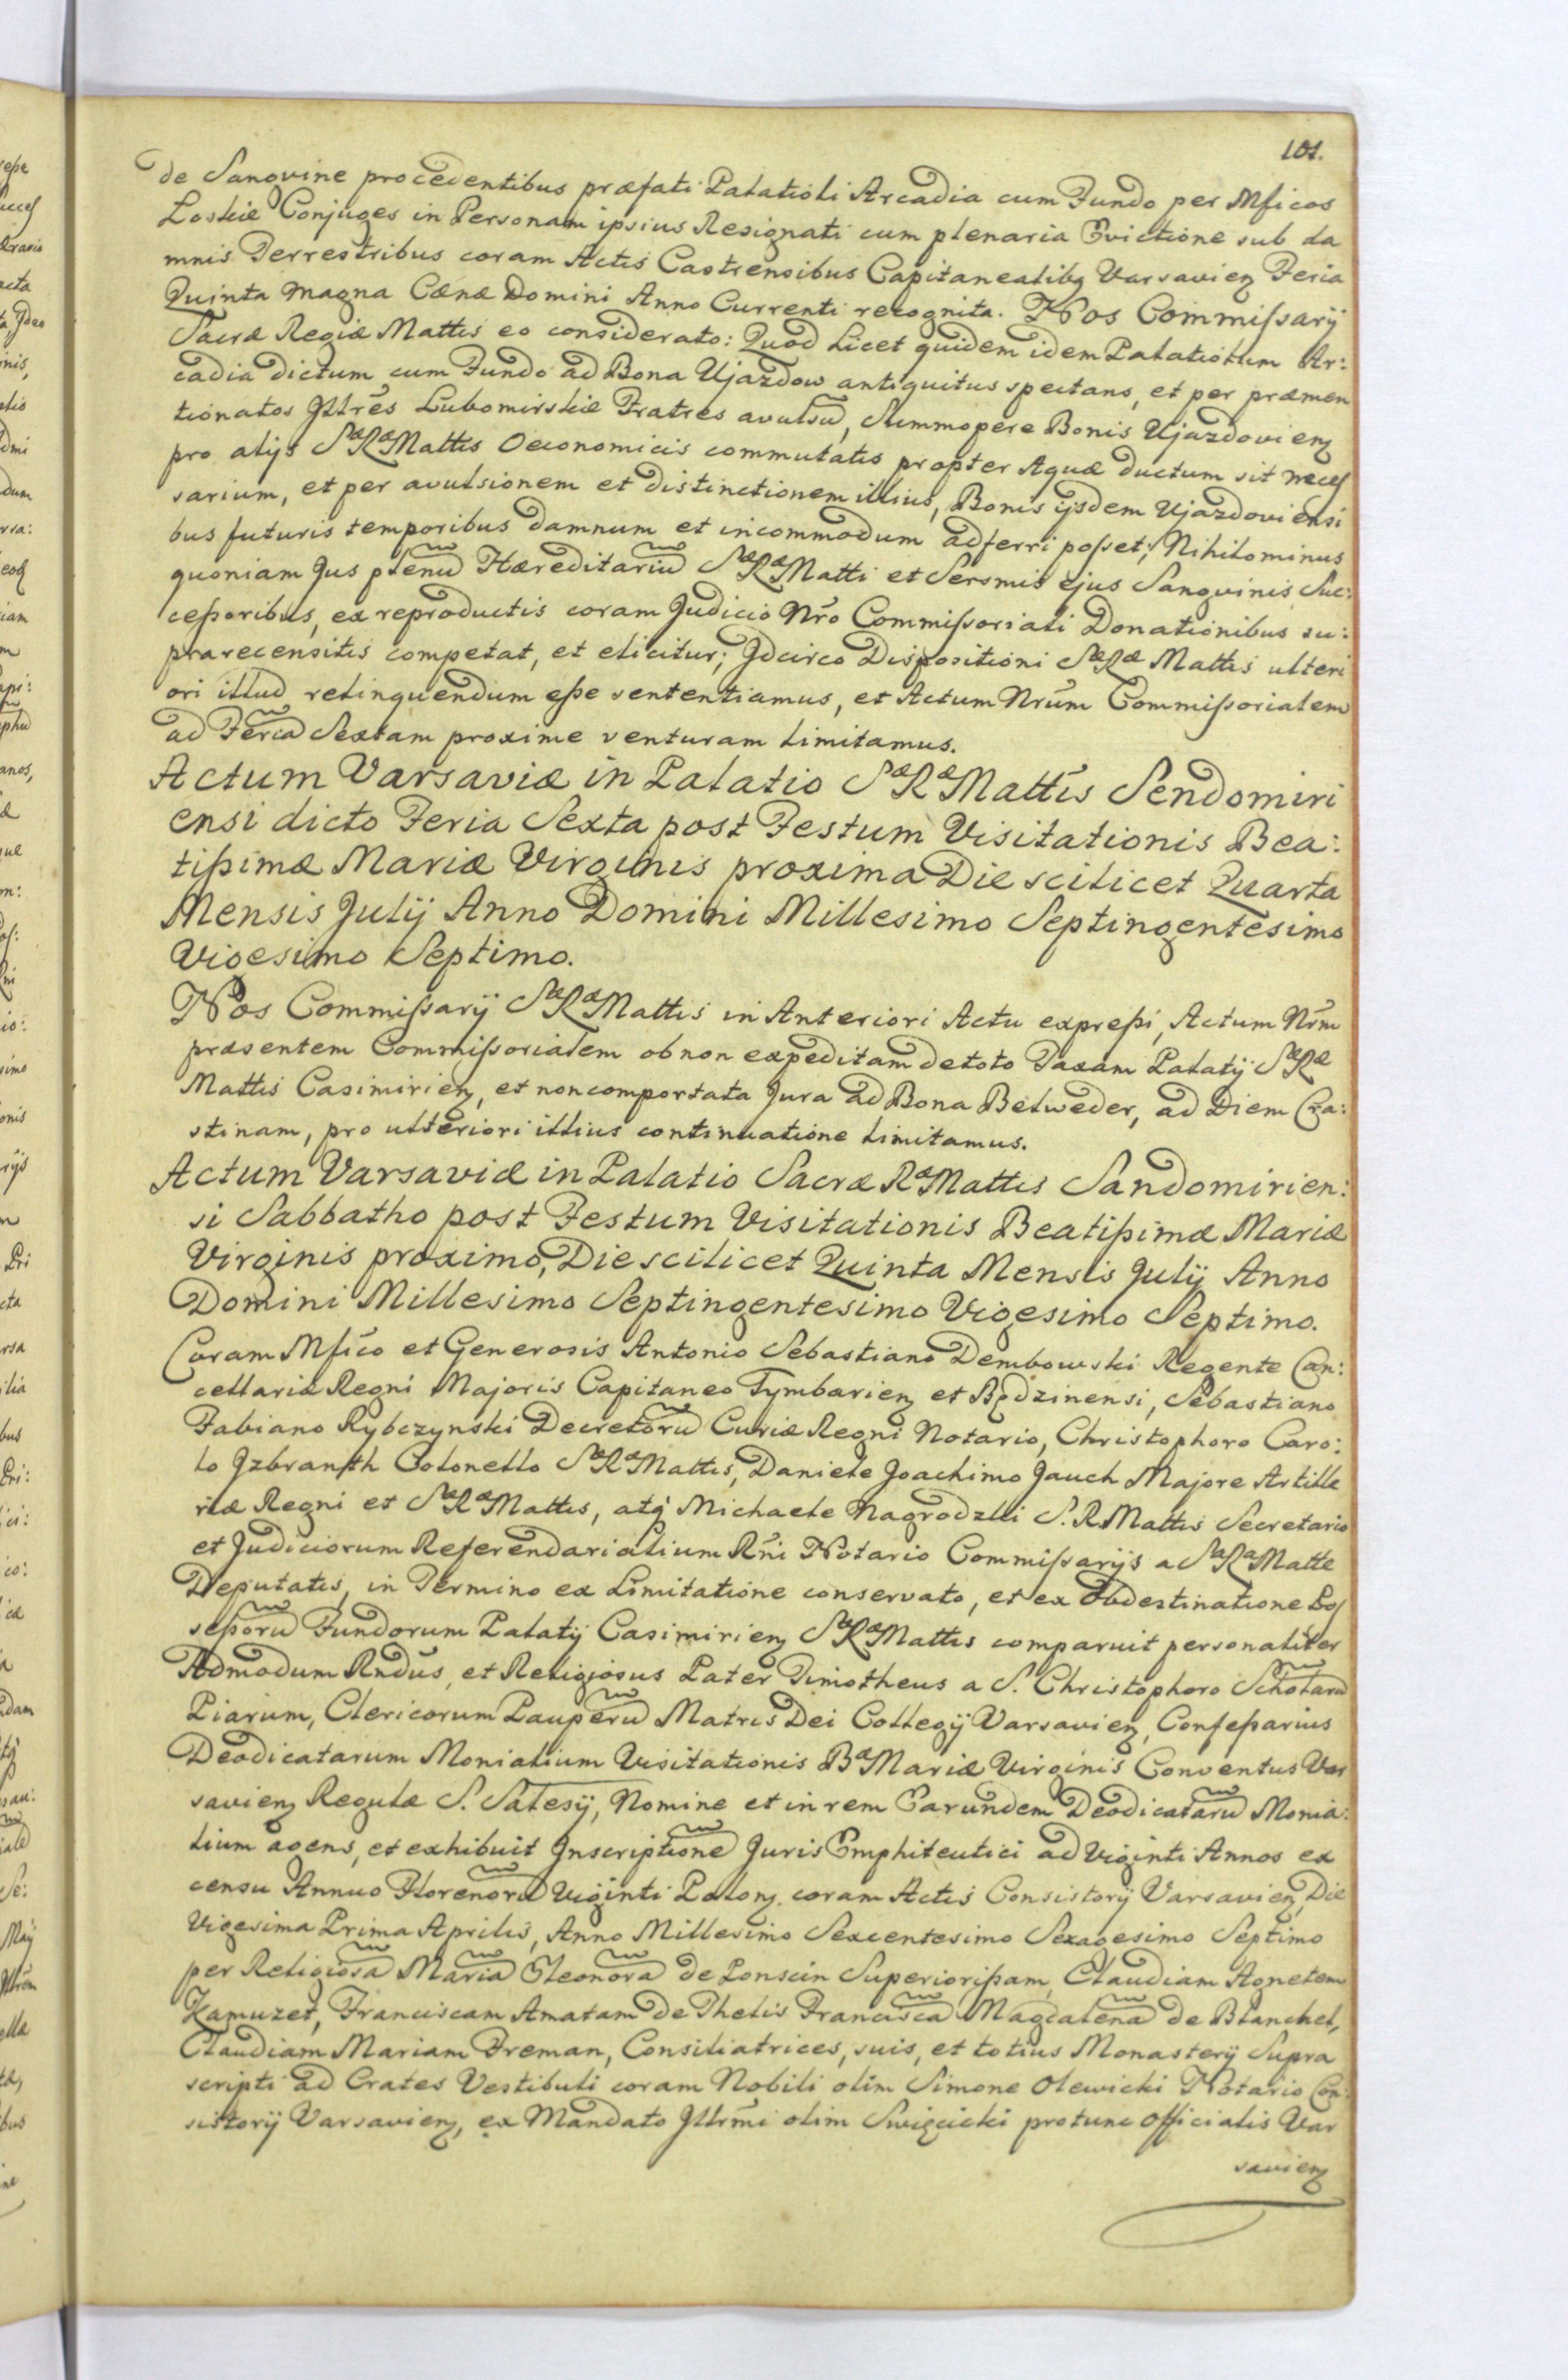 101.
de Sangvine procedentibus præfati Palatioli Arcadia cum Fundo per Mficos
Loskie Conjuges in Personam ipsius Resignati cum plenaria Evictione sub da
mnis Terrestribus coram Actis Castrensibus Capitanealibg Varsavien Feria
Quinta Magna Cænæ Domini Anno Currenti recognita. Nos Commissarij
Sacræ Regiæ Mattis eo considerato: Quod Licet quidem idem Palatiolum Ar:
cadia dictum cum Fundo ad Bona Ujazdow antiquitus spectans, et per præmen
tionatos Jllres Lubomirskie Fratres avulsu, Summopere Bonis Ujazdovien
pro alijs SæRæMattis Oeconomicis commutatis propter Aquæ ductum sit necef
sarium, et per avulsionem et distinctionem illius, Bonis ijsdem Ujazdoviensi
bus futuris temporibus damnum et incommodum adferri posset; Nihilominus
quoniam Jus plenu Hæreditariu SæRæMatti et Sersmis ejus Sangvinis Suc:
cessoribus, ex reproductis coram Judicio Nro Commissoriali Donationibus su:
prarecensitis competat, et elicitur; Jdcirco Dispositioni SæRæ Mattis ulteri
ori illud relinquendum esse sententiamus, et Actum Nrum Commissorialem
ad Ferca Sextam proxime venturam limitamus.
Actum Varsaviæ in Palatio SæRæMattis Sendomiri
ensi dicto Feria Sexta post Festum Visitationis Bea:
tissimæ Mariæ Virginis proxima Die scilicet Quarta
Mensis Julij Anno Domini Millesimo Septingentesimo
Vigesimo Septimo.
Nos Commissarij SæRæMattis in Anteriori Actu expressi, Actum Nrm
præsentem Commissorialem ob non expeditam detoto Taxam Palatij SæRæ
Mattis Casimirien, et noncomportata Jura ad Bona Belweder, ad Diem Cra:
stinam, pro ulteriori illius continuatione limitamus.
Actum Varsaviæ in Palatio Sacræ RæMattis Sandomirien:
si Sabbatho post Festum Visitationis Beatissimæ Mariæ
Virginis proximo, Die scilicet Quinta Mensis Julij Anno
Domini Millesimo Septingentesimo Vigesimo Septimo.
Coram Mfico et Generosis Antonio Sebastiano Dembowski Regente Can:
cellariæ Regni Majoris Capitaneo Tymbarien et Będzinensi, Sebastiano
Fabiano Rybczynski Decretoru Curiæ Regni Notario, Christophoro Caro:
lo Jzbransth Colonello SæRæMattis, Daniele Joachimo Jauch Majore Artille
riæ Regni et SæRæMattis, atq Michaele Nagrodzki S. R. Mattis Secretario
et Judiciorum Referendarialium Rni Notario Commissarijs a SaRaMatte
Deputatis, in Termino ex Limitatione conservato, et ex Obdestinatione Pof
sessoru Fundorum Palatij Casimirien SæRæMattis comparuit personaliter
Admodum Rndus, et Religiosus Pater Timotheus a S. Christophoro Scholaru
Piarum, Clericorum Pauperu Matris Dei Collegij Varsavien, Confessarius
Deodicatarum Monialium Visitationis Bæ Mariæ Virginis Conventus Var
savien Regulæ S. Salesij, Nomine et in rem Earundem Deodicataru Monia:
lium agens, et exhibuit Jnscriptione Juris Emphiteutici ad Viginti Annos ex
censu Annuo Florenoru Viginti Polon. coram Actis Consistorij Varsavien, Die
Vigesima Prima Aprilis, Anno Millesimo Sexcentesimo Sexagesimo Septimo
per Religiosa Maria Eleonora de Lonscin Superiorissam, Claudiam Agnetem
Kamuzet, Franciscam Amatam de Thelis Francisca Magdalena de Blanchet,
Claudiam Mariam Freman, Consiliatrices, suis, et totius Monasterij Supra
scripti ad Crates Vestibuli coram Nobili olim Simone Olewicki Notario Con:
sistorij Varsavien, ex Mandato Jllrmi olim Swięcicki protunc Officialis Var
savien